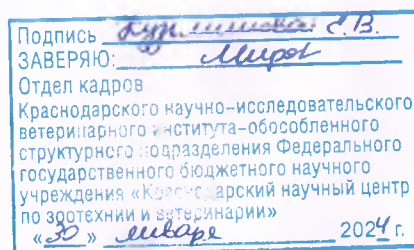 Подпись Кузьминовой Е.В.
ЗАВЕРЯЮ:
Отдел кадров
Краснодарского научно-исследовательского
ветеринарного института-обособленного
структурного подразделения Федерального
государственного бюджетного научного
учреждения «Краснодарский научный центр
по зоотехнии и ветеринарии»
«30» января 2024 г.